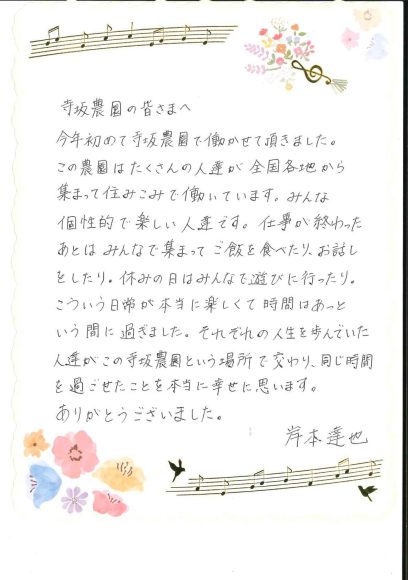 寺坂農園の皆さまへ
今年初めて寺坂農園で働かせて頂きました。
この農園はたくさんの人達が全国各地から
集まって住みこみで働いています。みんな
個性的で楽しい人達です。仕事が終わった
あとはみんなで集まってご飯を食べたり、お話し
をしたり。休みの日はみんなで遊びに行ったり。
こういう日常が本当に楽しくて時間はあっと
いう間に過ぎました。それぞれの人生を歩んでいた
人達がこの寺坂農園という場所で交わり、同じ時間
を過ごせたことを本当に幸せに思います。
ありがとうございました。
岸本達也